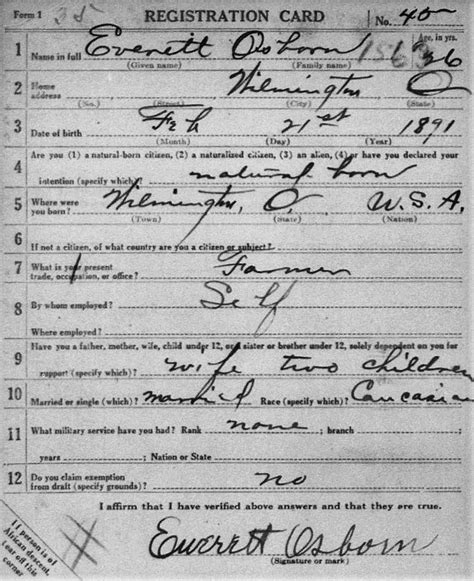 Form 1 35 REGISTRATION CARD No. 45
1 Name in full Everett Osborn 26 Age, in yrs.
(Given name) (Family name)
2 Home address Wilmington O
(No.) (Street) (City) (State)
3 Date of birth Feb 21st 1891
(Month) (Day) (Year)
4 Are you (1) a natural-born citizen, (2) a naturalized citizen, (3) an alien, (4) or have you declared your
intention (specify which)? natural born
5 Where were you born? Wilmington, O. U.S.A.
(Town) (State) (Nation)
6 If not a citizen, of what country are you a citizen or subject?
7 What is your present trade, occupation, or office? Farmer
8 By whom employed? Self
Where employed?
9 Have you a father, mother, wife, child under 12, or a sister or brother under 12, solely dependent on you for
support (specify which)? wife two children
10 Married or single (which)? married Race (specify which)? Caucasian
11 What military service have you had? Rank none ; branch
years ; Nation or State
12 Do you claim exemption from draft (specify grounds)? no
I affirm that I have verified above answers and that they are true.
Everett Osborn
(Signature or mark)
If person is of
African descent,
tear off this
corner